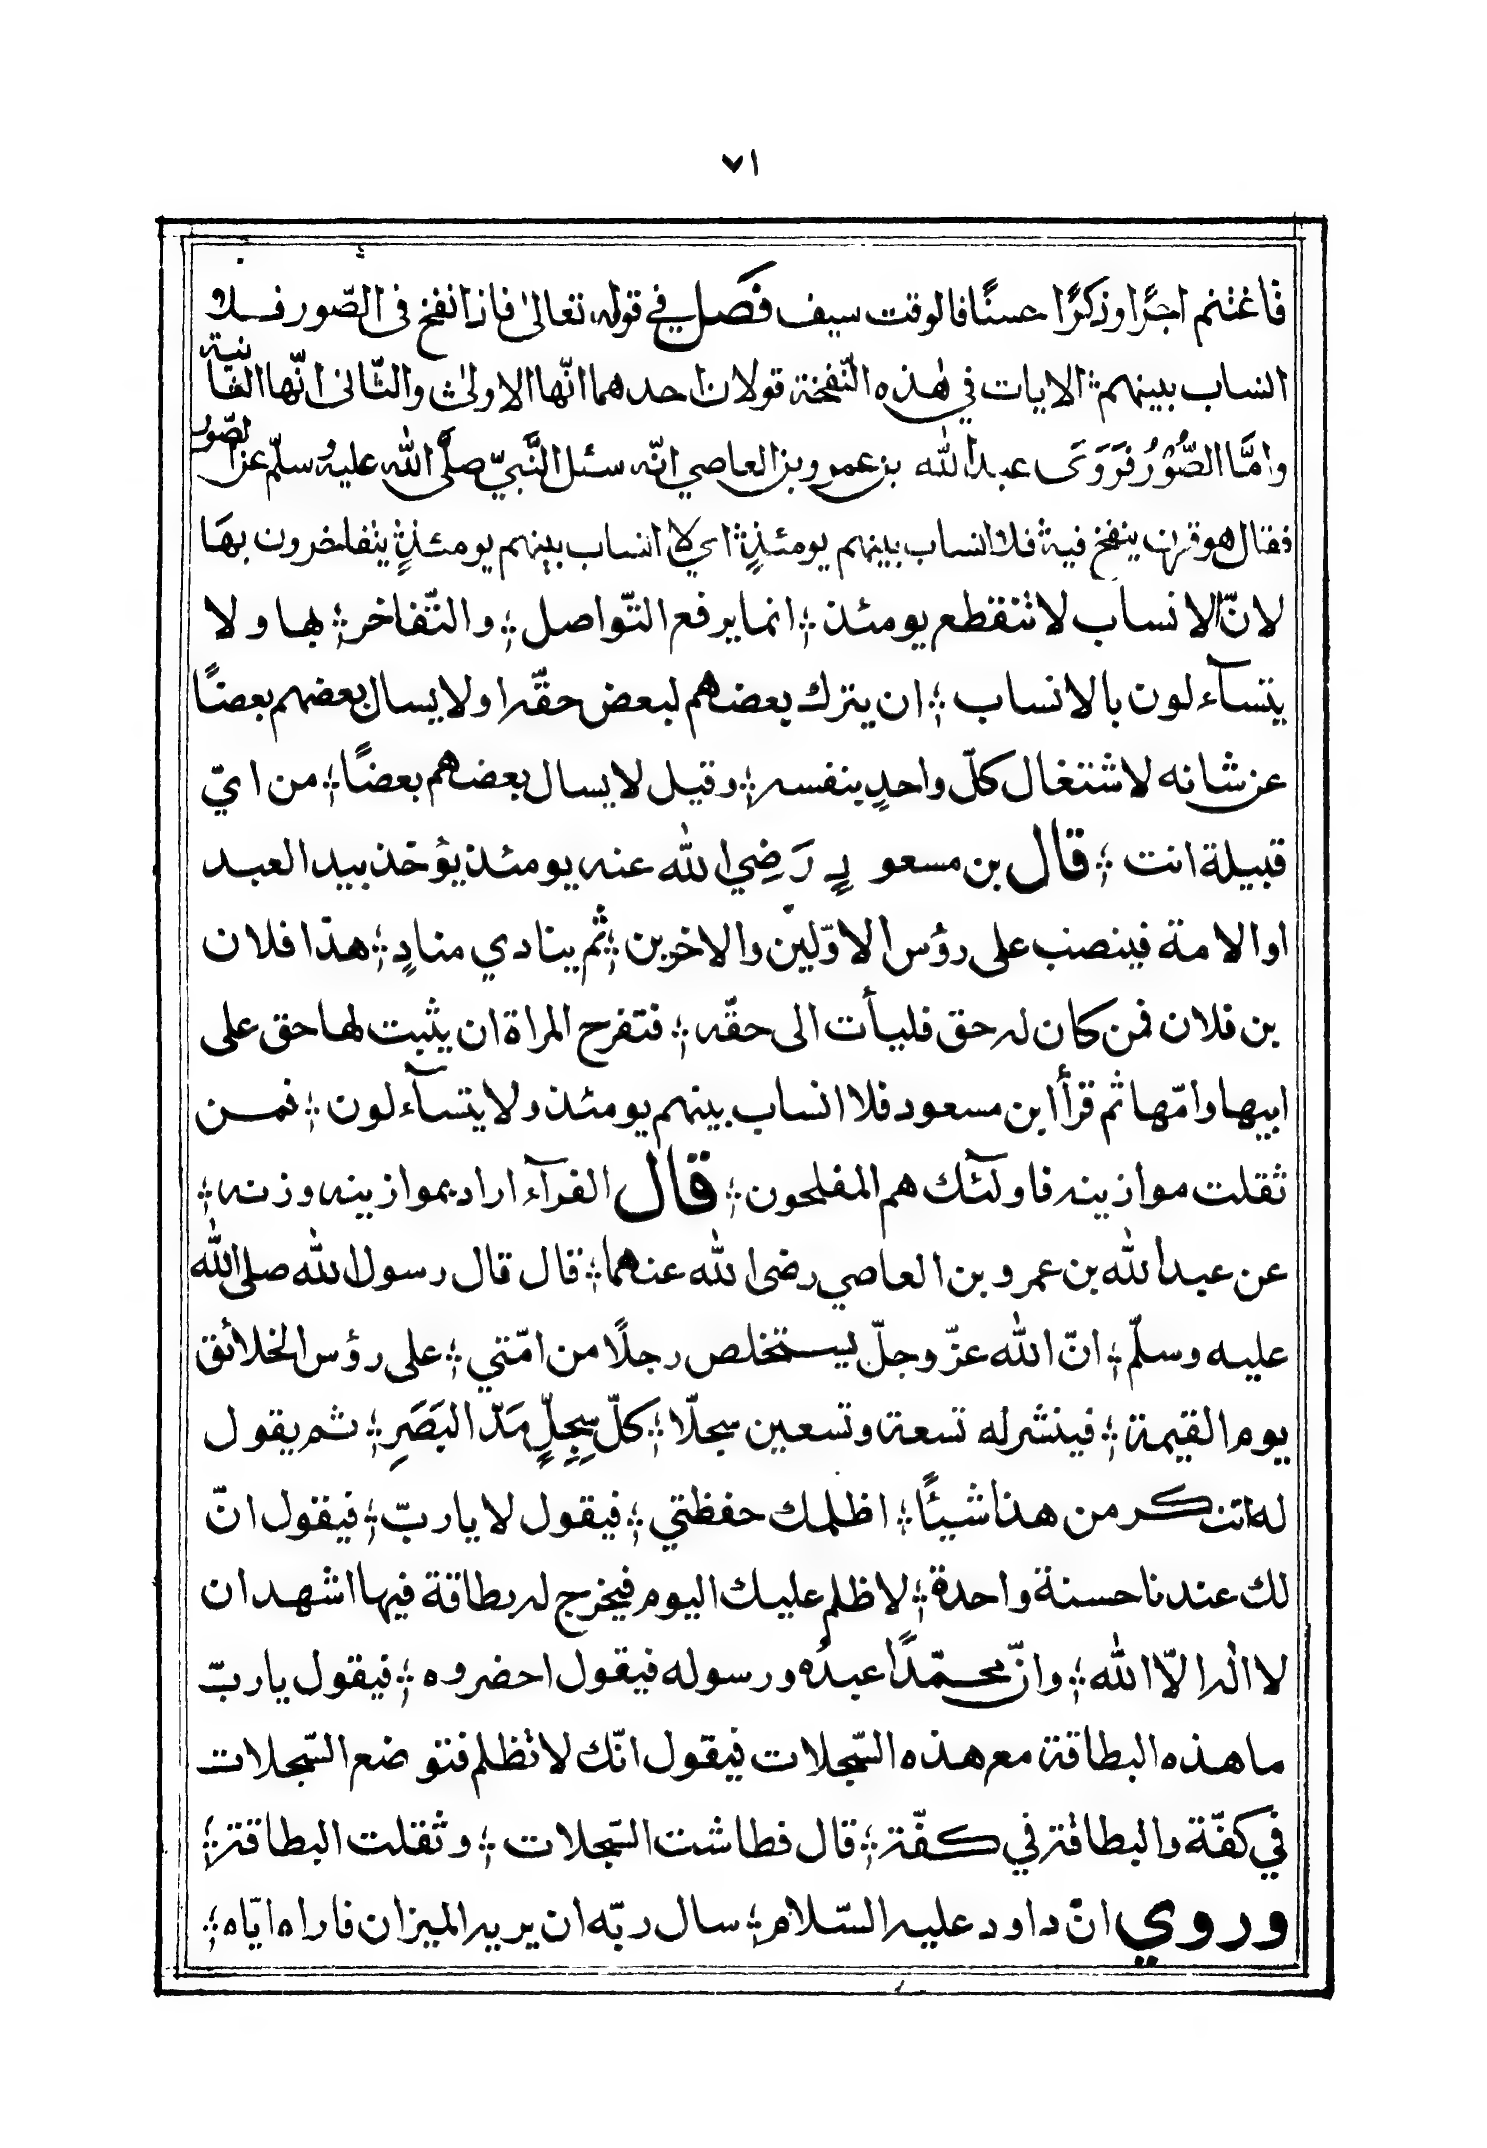 ٧١
فاغتنم اجرًا وذكرًا حسنًا فالوقت سيف فَصَل في قوله تعالىٰ فاذا نفخ فى الصّور فلا
انساب بينهم ؛ الايات في هٰذه النّفخة قولان احدهما انّها الاولىٰ والثّانى انّها الثّانية
وامَّا الصُّوْرُ فَرَوَى عبد الله بن عمرو بن العاصي انّه سئل النَّبيّ صلَّى الله عليه وسلّم عن الصّور
فقال هو قرن ينفخ فيه ؛ فلا انساب بينهم يومئذٍ ؛ اي لا انساب بينهم يومئذٍ ؛ يتفاخرون بها
لانّ الانساب لا تنقطع يومئذ ؛ انما يرفع التّواصل ؛ والتّفاخر ؛ بها ولا
يتسآءلون بالانساب ؛ ان يترك بعضهم لبعض حقّه اولا يسال بعضهم بعضًا
عن شانه لاشتغال كلّ واحدٍ بنفسه ؛ وقيل لا يسال بعضهم بعضًا ؛ من ايّ
قبيلة انت ؛ قال بن مسعودٍ رَضِي الله عنه يومئذ يؤخذ بيد العبد
او الامة فينصب على رؤس الاوّلين والاخرين ؛ ثم ينادي منادٍ ؛ هذا فلان
بن فلان فمن كان له حق فليأت الى حقّه ؛ فتفرح المراة ان يثبت لها حق على
ابيها وامّها ثم قرأ ابن مسعود فلا انساب بينهم يومئذ ولا يتسآءلون ؛ فمن
ثقلت موازينه فاولٓئك هم المفلحون ؛ قال الفرآء اراد بموازينه وزنه ؛
عن عبد الله بن عمرو بن العاصي رضى الله عنهما ؛ قال قال رسول الله صلى الله
عليه وسلّم ؛ انّ الله عزّ وجلّ ليستخلص رجلًا من امّتي ؛ على رؤس الخلائق
يوم القيمة ؛ فينشر له تسعة وتسعين سجلّا ؛ كلّ سِجِلٍّ مَدّ البَصَرِ ؛ ثم يقول
له اتنكر من هذا شيئًا ؛ اظلمك حفظتي ؛ فيقول لا يا ربّ ؛ فيقول انّ
لك عندنا حسنة واحدة ؛ لا ظلم عليك اليوم فيخرج له بطاقة فيها اشهد ان
لا اله الّا الله ؛ وانّ محمّدًا عبدُه ورسوله فيقول احضروه ؛ فيقول يا ربّ
ما هذه البطاقة مع هذه السّجلات فيقول انّك لا تظلم فتوضع السّجلات
في كفّة والبطاقة في كفّة ؛ قال فطاشت السّجلات ؛ وثقلت البطاقة ؛
وروي انّ داود عليه السّلام ؛ سال ربّه ان يريه الميزان فاراه ايّاه ؛